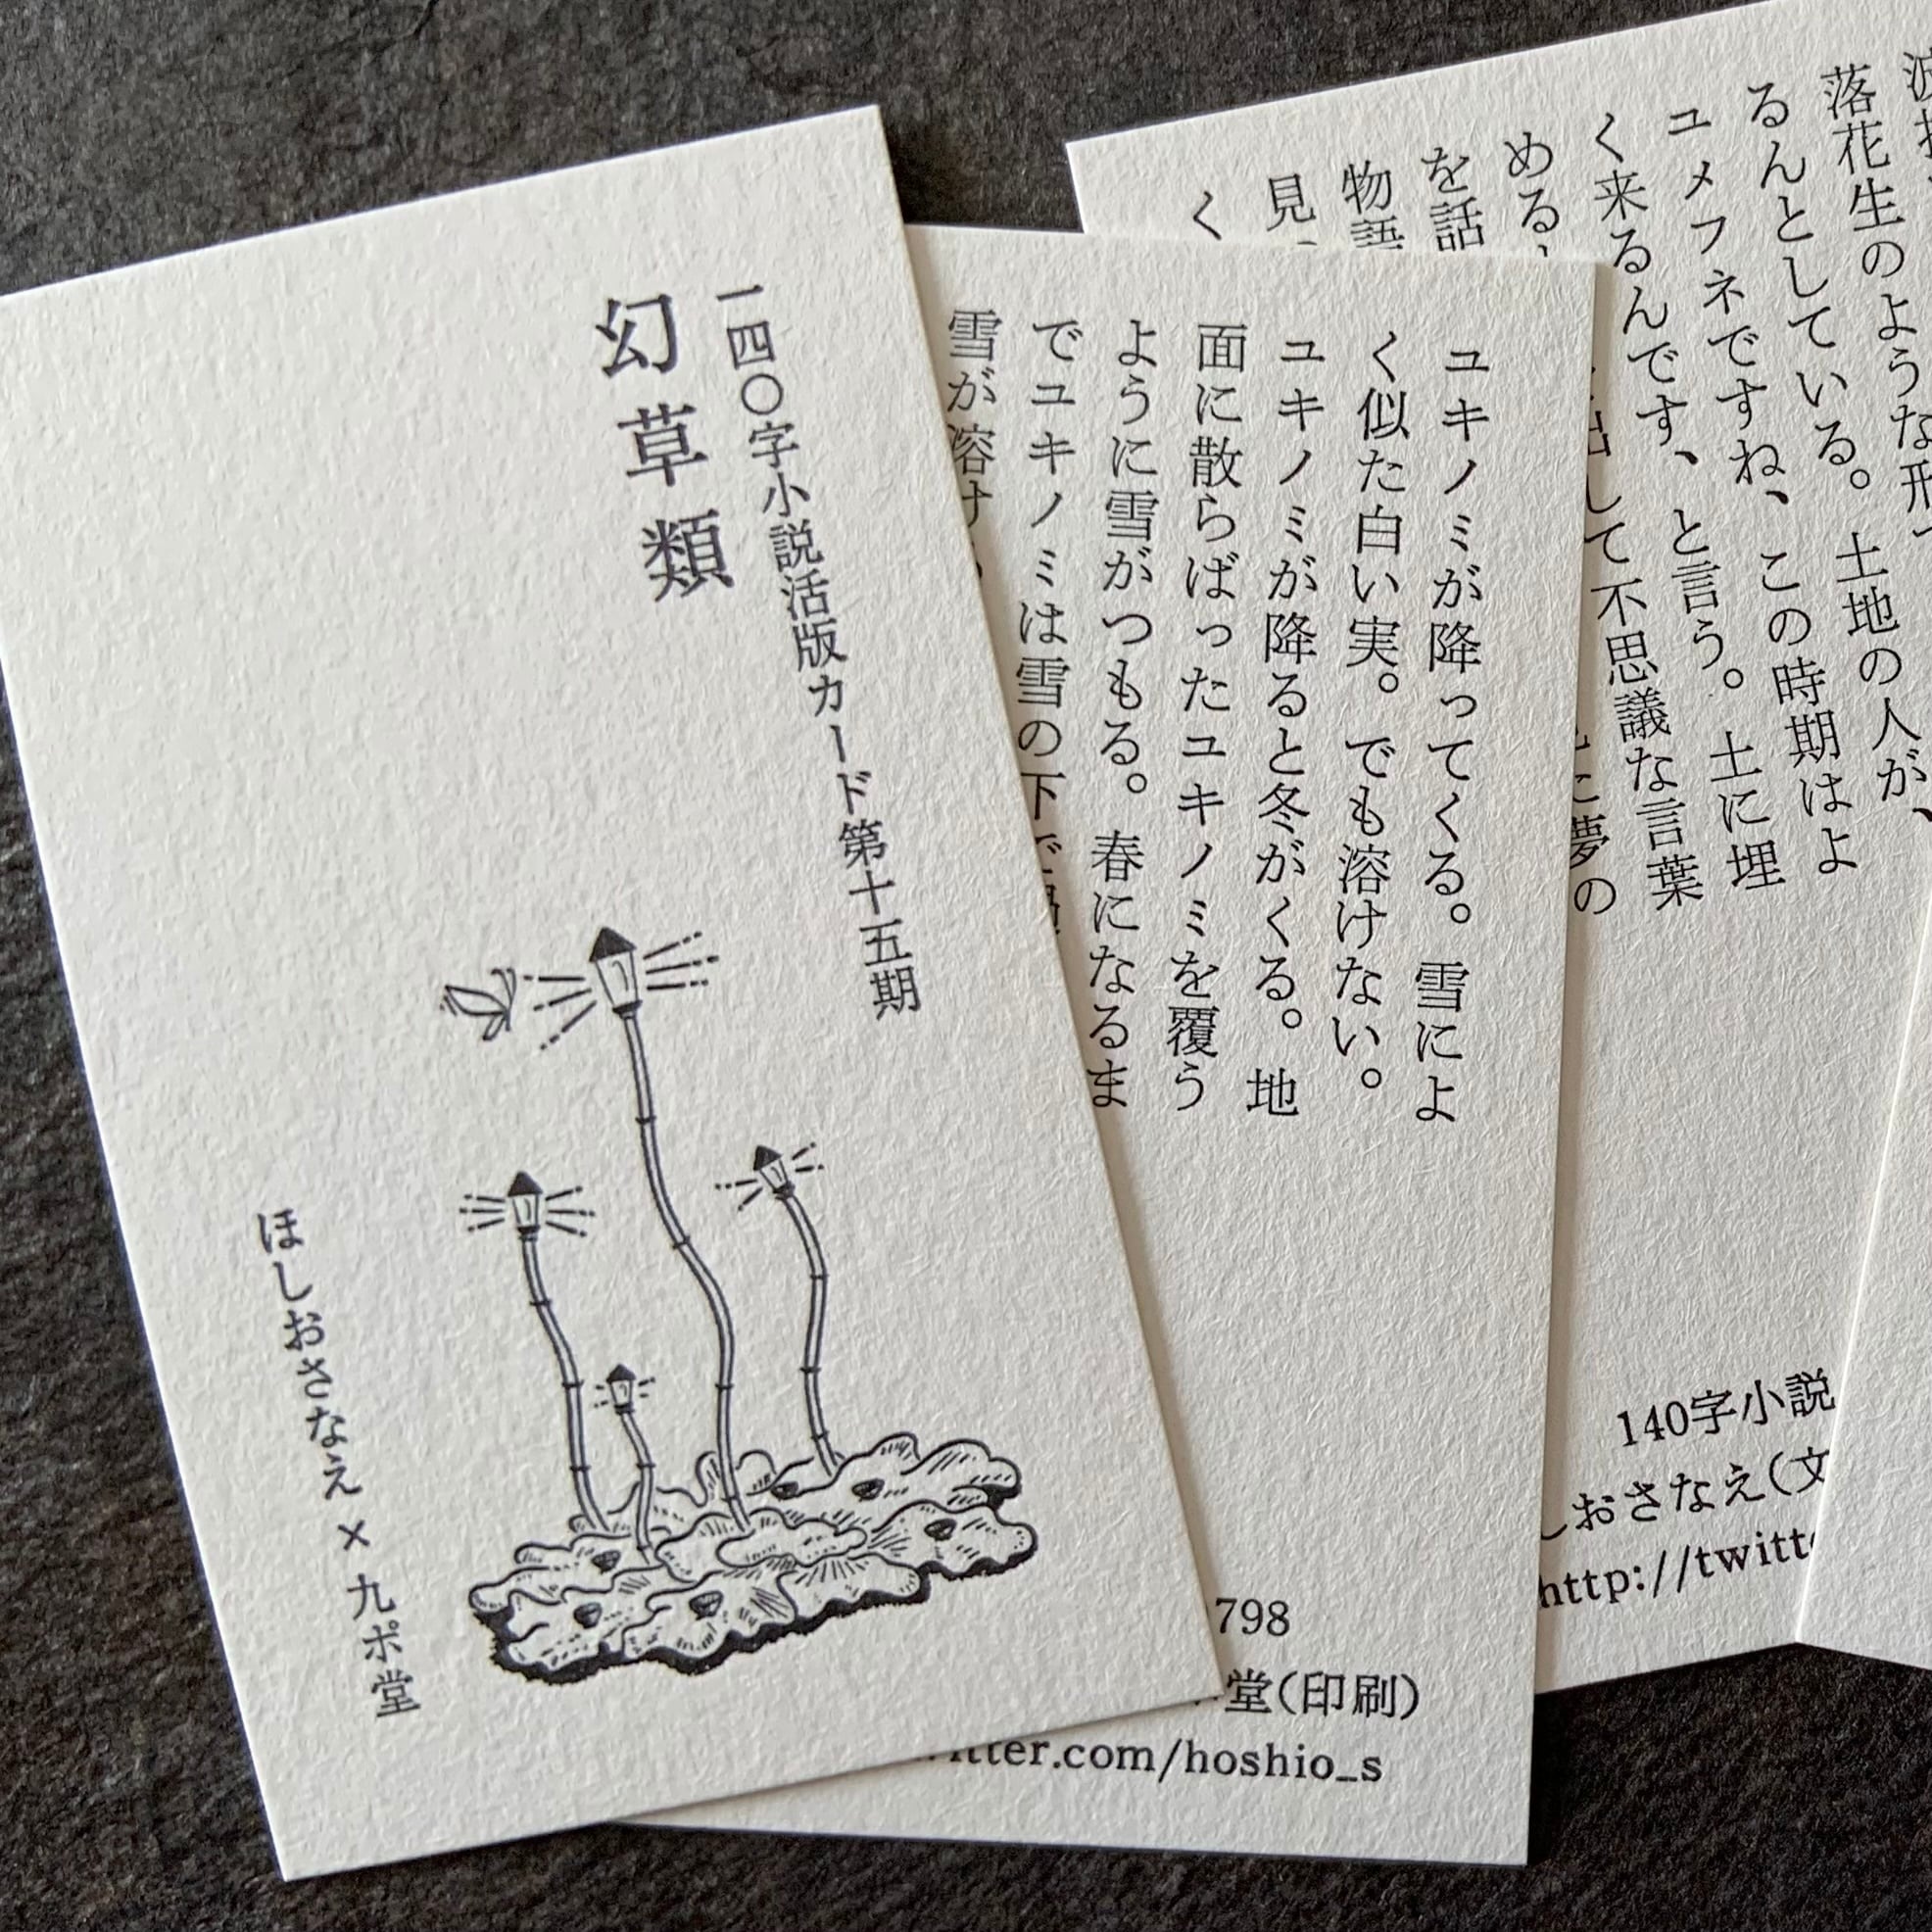 一四〇字小説活版カード第十五期
幻草類
ほしおさなえ×九ポ堂
ユキノミが降ってくる。雪によ
く似た白い実。でも溶けない。
ユキノミが降ると冬がくる。地
面に散らばったユキノミを覆う
ように雪がつもる。春になるま
でユキノミは雪の下で
雪が溶け
798
堂(印刷)
twitter.com/hoshio_s
落花生のような形
るんとしている。土地の人が、
ユメフネですね、この時期はよ
く来るんです、と言う。土に埋
める
して不思議な言葉
を話
に夢の
物語
見
く
140字小説
しおさなえ(文
http://twitt